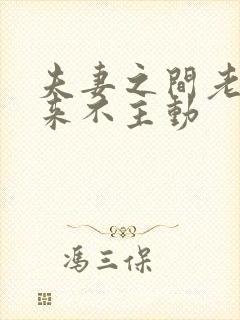 夫妻之間老
来不主動
馮三保